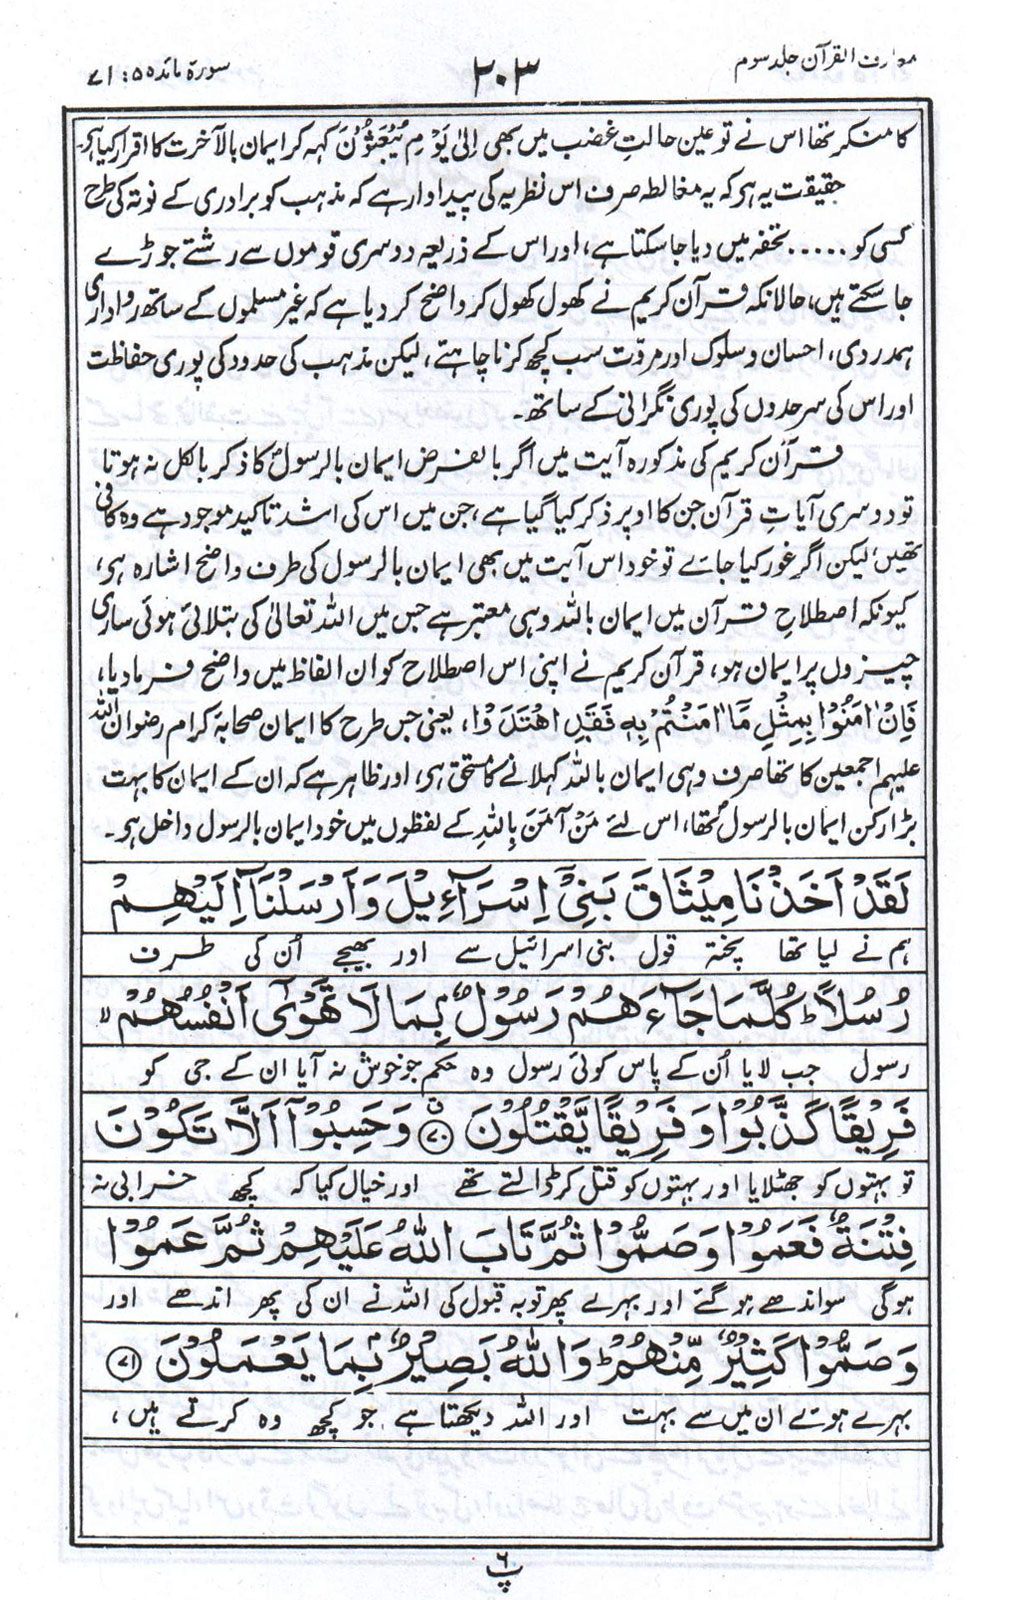 معارف القرآن جلد سوم
۲۰۳
سورۃ مائدہ ۵ : ۷۱
کا منکر تھا اس نے تو عین حالتِ غضب میں بھی اِلٰی یَوْمِ یُبْعَثُوْنَ کہہ کر ایمان بالآخرت کا اقرار کیا ہی۔
حقیقت یہ ہی کہ یہ مغالطہ صرف اس نظریہ کی پیداوار ہے کہ مذہب کو برادری کے نوتہ کی طرح
کسی کو ..... تحفہ میں دیا جا سکتا ہے، اور اس کے ذریعہ دوسری قوموں سے رشتے جوڑے
جا سکتے ہیں، حالانکہ قرآن کریم نے کھول کھول کر واضح کر دیا ہے کہ غیر مسلموں کے ساتھ رواداری
ہمدردی، احسان و سلوک اور مروّت سب کچھ کرنا چاہئے، لیکن مذہب کی حدود کی پوری حفاظت
اور اس کی سرحدوں کی پوری نگرانی کے ساتھ۔
قرآن کریم کی مذکورہ آیت میں اگر بالفرض ایمان بالرسول کا ذکر بالکل نہ ہوتا
تو دوسری آیاتِ قرآن جن کا اوپر ذکر کیا گیا ہے، جن میں اس کی اشد تاکید موجود ہے وہ کافی
تھیں، لیکن اگر غور کیا جائے تو خود اس آیت میں بھی ایمان بالرسول کی طرف واضح اشارہ ہی،
کیونکہ اصطلاحِ قرآن میں ایمان باللہ وہی معتبر ہے جس میں اللہ تعالیٰ کی بتلائی ہوئی ساری
چیزوں پر ایمان ہو، قرآن کریم نے اپنی اس اصطلاح کو ان الفاظ میں واضح فرما دیا،
فَاِنْ اٰمَنُوْا بِمِثْلِ مَآ اٰمَنْتُمْ بِهٖ فَقَدِ اهْتَدَوْا، یعنی جس طرح کا ایمان صحابہ کرام رضوان اللہ
علیہم اجمعین کا تھا صرف وہی ایمان باللہ کہلانے کا مستحق ہی، اور ظاہر ہے کہ ان کے ایمان کا بہت
بڑا رکن ایمان بالرسول تھا، اس لئے مَنْ آمَنَ بِاللّٰہِ کے لفظوں میں خود ایمان بالرسول داخل ہی۔
لَقَدْ اَخَذْنَا مِیْثَاقَ بَنِیْٓ اِسْرَآءِیْلَ وَاَرْسَلْنَآ اِلَیْهِمْ
ہم نے لیا تھا پختہ قول بنی اسرائیل سے اور بھیجے اُن کی طرف
رُسُلًا ؕ کُلَّمَا جَآءَهُمْ رَسُوْلٌۢ بِمَا لَا تَهْوٰٓی اَنْفُسُهُمْ ۙ
رسول جب لایا اُن کے پاس کوئی رسول وہ حکم جو خوش نہ آیا ان کے جی کو
فَرِیْقًا کَذَّبُوْا وَ فَرِیْقًا یَّقْتُلُوْنَ ﴿۷۰﴾ وَحَسِبُوْٓا اَلَّا تَکُوْنَ
تو بہتوں کو جھٹلایا اور بہتوں کو قتل کر ڈالتے تھے اور خیال کیا کہ کچھ خرابی نہ
فِتْنَةٌ فَعَمُوْا وَصَمُّوْا ثُمَّ تَابَ اللّٰهُ عَلَیْهِمْ ثُمَّ عَمُوْا
ہوگی سو اندھے ہو گئے اور بہرے پھر توبہ قبول کی اللہ نے ان کی پھر اندھے اور
وَصَمُّوْا کَثِیْرٌ مِّنْهُمْ ؕ وَاللّٰهُ بَصِیْرٌۢ بِمَا یَعْمَلُوْنَ ﴿۷۱﴾
بہرے ہوئے ان میں سے بہت اور اللہ دیکھتا ہے جو کچھ وہ کرتے ہیں،
پ ۶